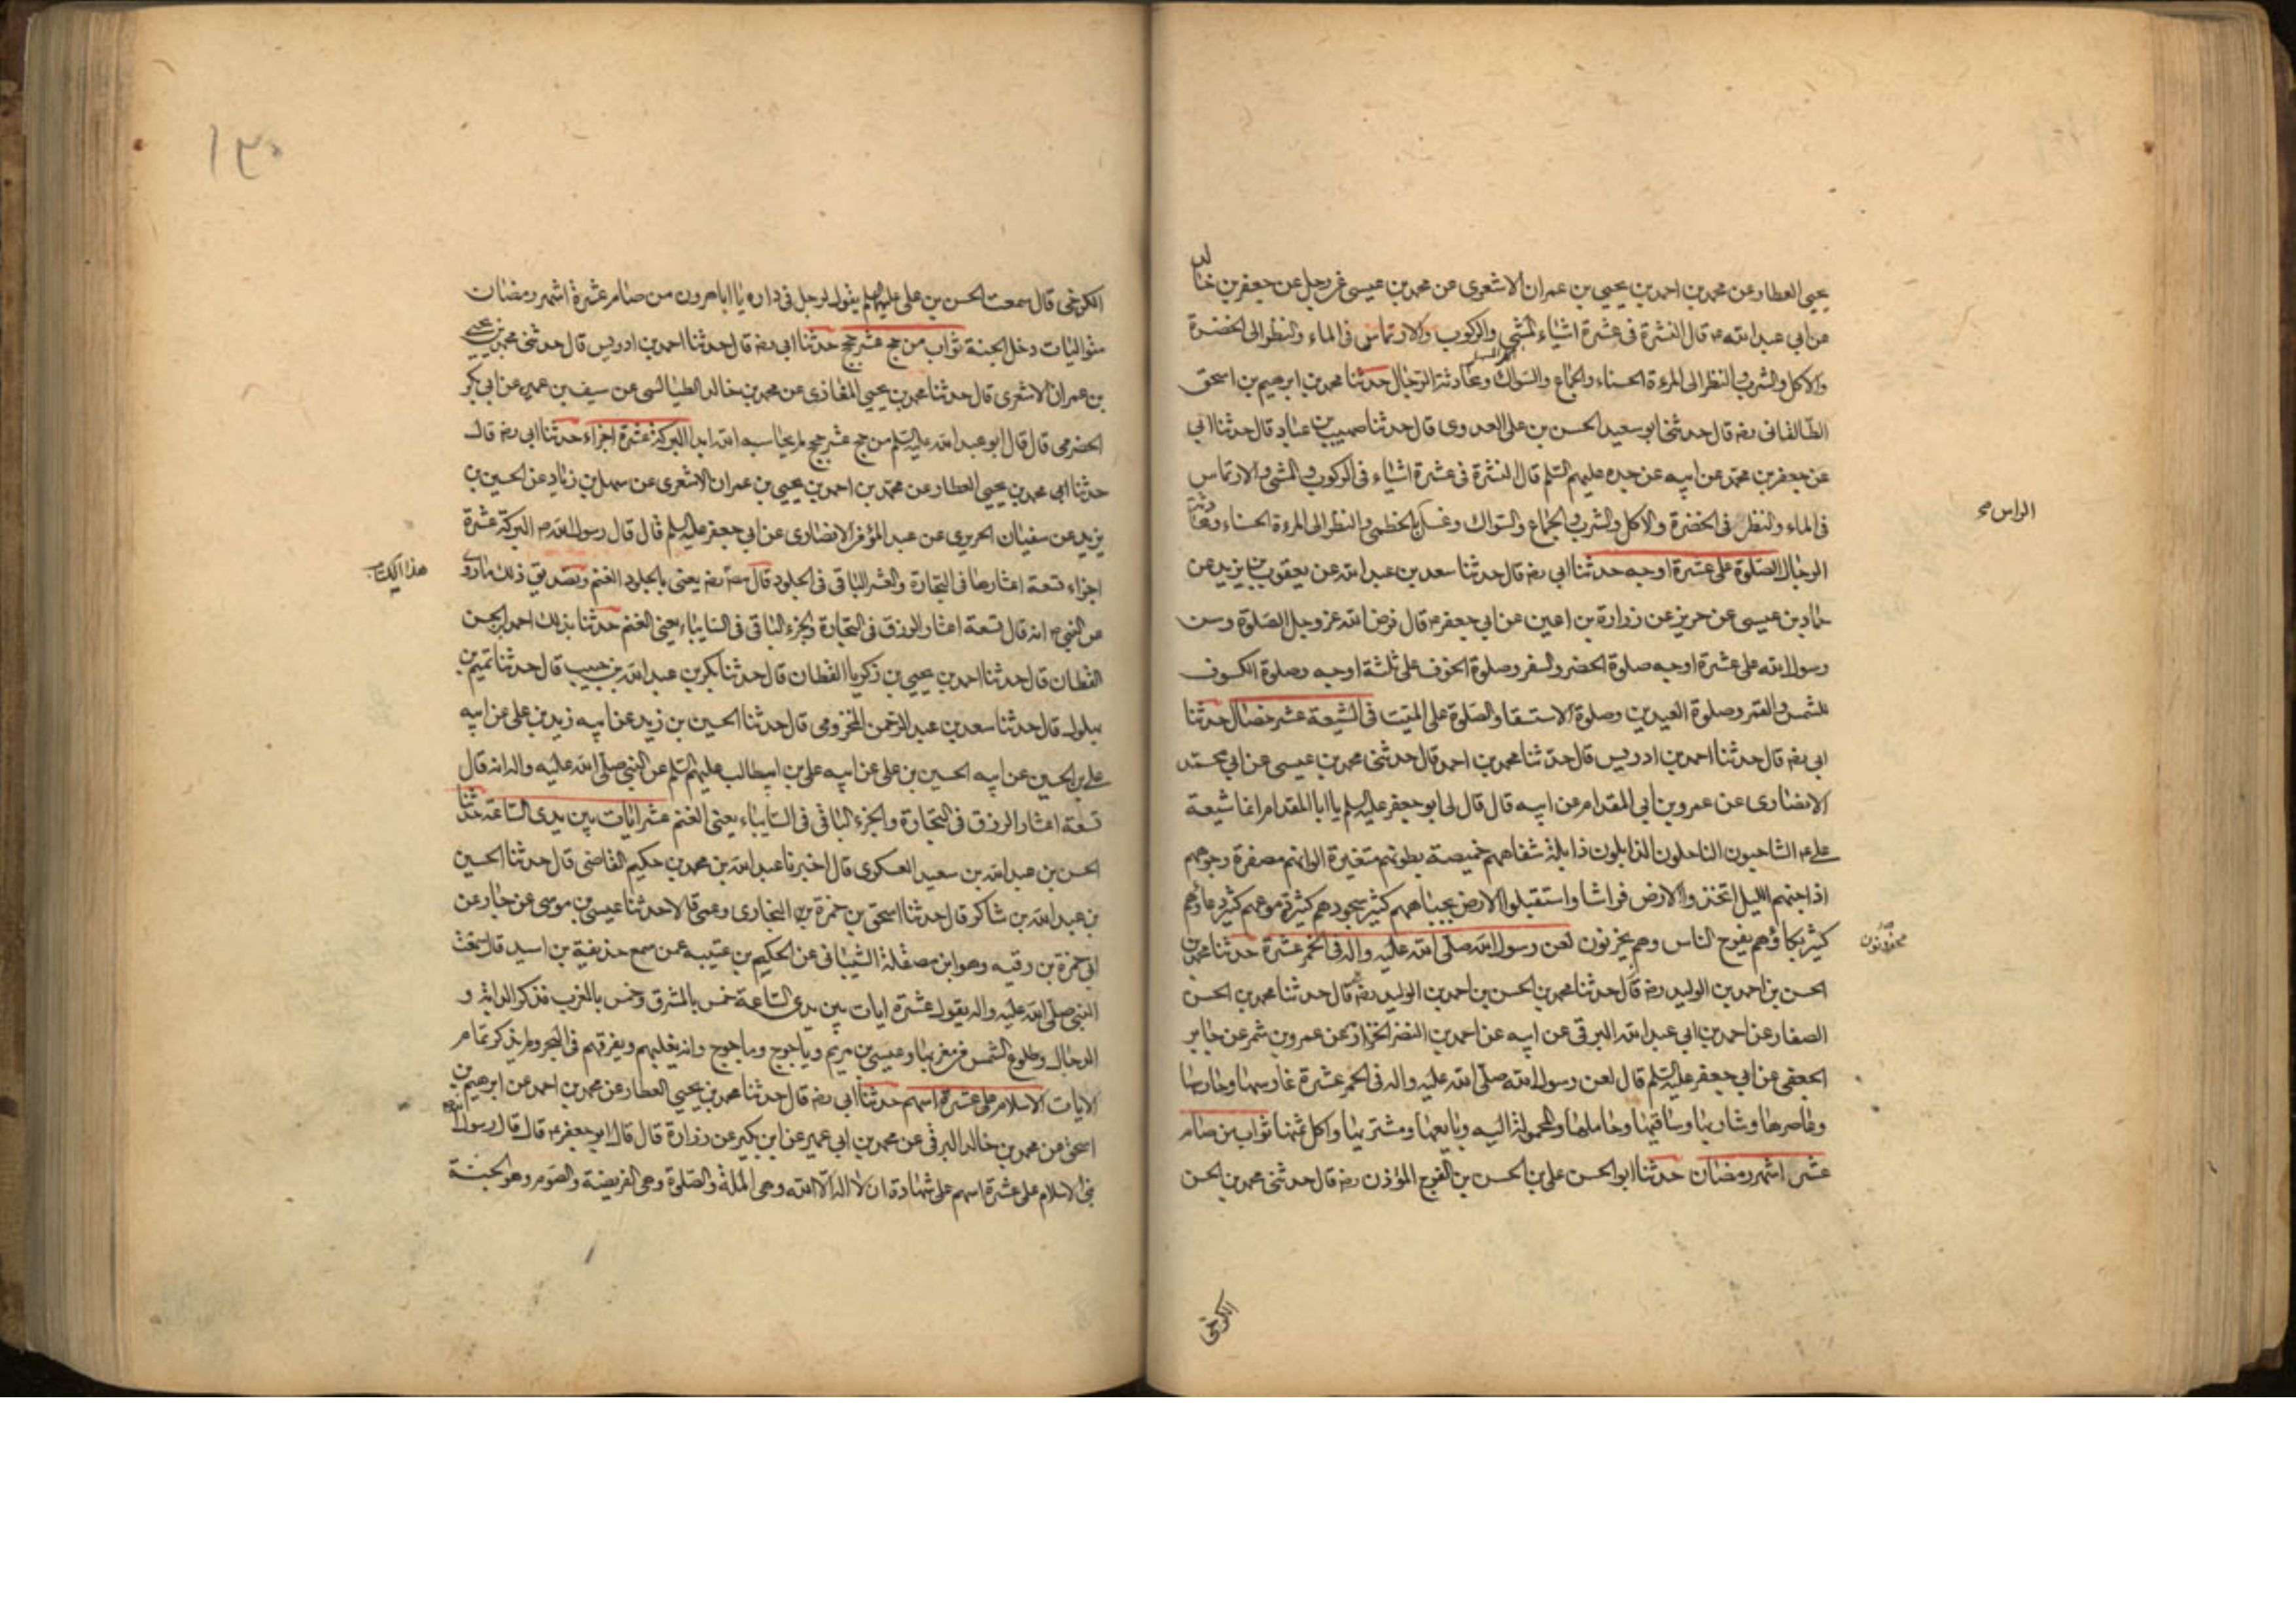 يحيى العطار عن محمد بن احمد بن يحيى بن عمران الاشعرى عن محمد بن عيسى عن رجل عن جعفر بن خالد
عن ابي عبد الله ع قال النشرة في عشرة اشياء المشي والركوب والارتماس في الماء والنظر الى الخضرة
والاكل والشرب والنظر الى المرءة الحسناء والجماع والسواك ومحادثة الرجال حدثنا محمد بن ابرهيم بن اسحق
الطالقانى رضه قال حدثنى ابو سعيد الحسن بن على العدوى قال حدثنا صهيب بن عباد قال حدثنا ابي
عن جعفر بن محمد عن ابيه عن جده عليهم السلم قال النشرة في عشرة اشياء في الركوب والمشى والارتماس
في الماء والنظر في الخضرة والاكل والشرب والجماع والسواك وغسل بالخطمى والنظر الى المرءة الحسناء ومحادثة
الراس
الرجال الصلوة على عشرة اوجه حدثنا ابي رضه قال حدثنا سعد بن عبد الله عن يعقوب بن يزيد عن
حماد بن عيسى عن حريز عن زرارة بن اعين عن ابي جعفر ع قال فرض الله عز وجل الصلوة وسن
رسول الله على عشرة اوجه صلوة الحضر والسفر وصلوة الخوف على ثلثة اوجه وصلوة الكسوف
للشمس والقمر وصلوة العيدين وصلوة الاستسقا والصلوة على الميت في الشيعة عشر خصال حدثنا
ابى رضه قال حدثنا احمد بن ادريس قال حدثنا محمد بن احمد قال حدثنى محمد بن عيسى عن ابي محمد
الانصارى عن عمرو بن ابي المقدام عن ابيه قال قال لى ابو جعفر عليه السلم يا ابا المقدام انما شيعة
على ع الشاحبون الناحلون الذابلون ذابلة شفاههم خميصة بطونهم متغيرة الوانهم مصفرة وجوههم
اذا جنهم الليل اتخذوا الارض فراشا واستقبلوا الارض بجباههم كثير سجودهم كثيرة دموعهم كثير دعاؤهم
كثير بكاؤهم يفرح الناس وهم يحزنون لعن رسول الله صلى الله عليه واله في الخمر عشرة حدثنا محمد بن
محزونون
الحسن بن احمد بن الوليد رضه قال حدثنا محمد بن الحسن بن احمد بن الوليد رضه قال حدثنا محمد بن الحسن
الصفار عن احمد بن ابي عبد الله البرقى عن ابيه عن احمد بن النضر الخزاز عن عمرو بن شمر عن جابر
الجعفى عن ابي جعفر عليه السلم قال لعن رسول الله صلى الله عليه واله في الخمر عشرة غارسها وحارسها
وعاصرها وشاربها وساقيها وحاملها والمحمولة اليه وبايعها ومشتريها واكل ثمنها ثواب من صام
عشر اشهر رمضان حدثنا ابو الحسن على بن الحسن بن الفرج المؤذن رضه قال حدثنى محمد بن الحسن
الكرخى
١٣٠
الكرخى قال سمعت الحسن بن على عليهما السلم يقول لرجل في داره يا ابا هرون من صام عشرة اشهر رمضان
متواليات دخل الجنة ثواب من حج عشر حجج حدثنا ابي رضه قال حدثنا احمد بن ادريس قال حدثنى محمد بن يحيى
بن عمران الاشعرى قال حدثنا محمد بن يحيى المغاذى عن محمد بن خالد الطيالسى عن سيف بن عميرة عن ابي بكر
الحضرمى قال قال ابو عبد الله عليه السلم من حج عشر حجج لم يحاسبه الله ابدا البركة عشرة اجزاء حدثنا ابي رضه قال
حدثنا ابى محمد بن يحيى العطار عن محمد بن احمد بن يحيى بن عمران الاشعرى عن سهل بن زياد عن الحسين بن
يزيد عن سفيان الحريرى عن عبد المؤمن الانصارى عن ابي جعفر عليه السلم قال قال رسول الله ص البركة عشرة
اجزاء تسعة اعشارها في التجارة والعشر الباقى في الجلود قال مصنف رضه يعنى بالجلود الغنم وتصديق ذلك ما روى
هذا الكتاب
عن النبى ص انه قال تسعة اعشار الرزق في التجارة والجزء الباقى في السابياء يعنى الغنم حدثنا بذلك احمد بن الحسن
القطان قال حدثنا احمد بن يحيى بن زكريا القطان قال حدثنا بكر بن عبد الله بن حبيب قال حدثنا تميم بن
بهلول قال حدثنا سعد بن عبد الرحمن المخزومى قال حدثنا الحسين بن زيد عن ابيه زيد بن على عن ابيه
على بن الحسين عن ابيه الحسين بن على عن ابيه على بن ابيطالب عليهم السلم عن النبى صلى الله عليه واله انه قال
تسعة اعشار الرزق في التجارة والجزء الباقى في السابياء يعنى الغنم عشر ايات بين يدى الساعة حدثنا
الحسن بن عبد الله بن سعيد العسكرى قال اخبرنا عبد الله بن محمد بن حكيم القاضى قال حدثنا الحسين
بن عبد الله بن شاكر قال حدثنا اسحق بن حمزة بن البخارى وعمى قالا حدثنا عيسى بن موسى عن
ابي حمزة بن رقبه وهو ابن مصقلة الشيبانى عن الحكيم بن عتيبه عمن سمع حذيفة بن اسيد قال سمعت
النبى صلى الله عليه واله يقول عشرة ايات بين يدى الساعة خمس بالمشرق وخمس بالمغرب فذكر الدابة و
الدجال وطلوع الشمس من مغربها وعيسى بن مريم وياجوج وماجوج وانه يغلبهم ويغرقهم في البحر ولم يذكر تمام
الايات الاسلام على عشرة اسهم حدثنا ابى رضه قال حدثنا محمد بن يحيى العطار عن محمد بن احمد عن ابرهيم بن
اسحق عن محمد بن خالد البرقى عن محمد بن ابي عمير عن ابن بكير عن زرارة قال قال ابو جعفر ع قال قال رسول الله
بنى الاسلام على عشرة اسهم على شهادة ان لا اله الا الله وهى الملة والصلوة وهى الفريضة والصوم وهو الجنة